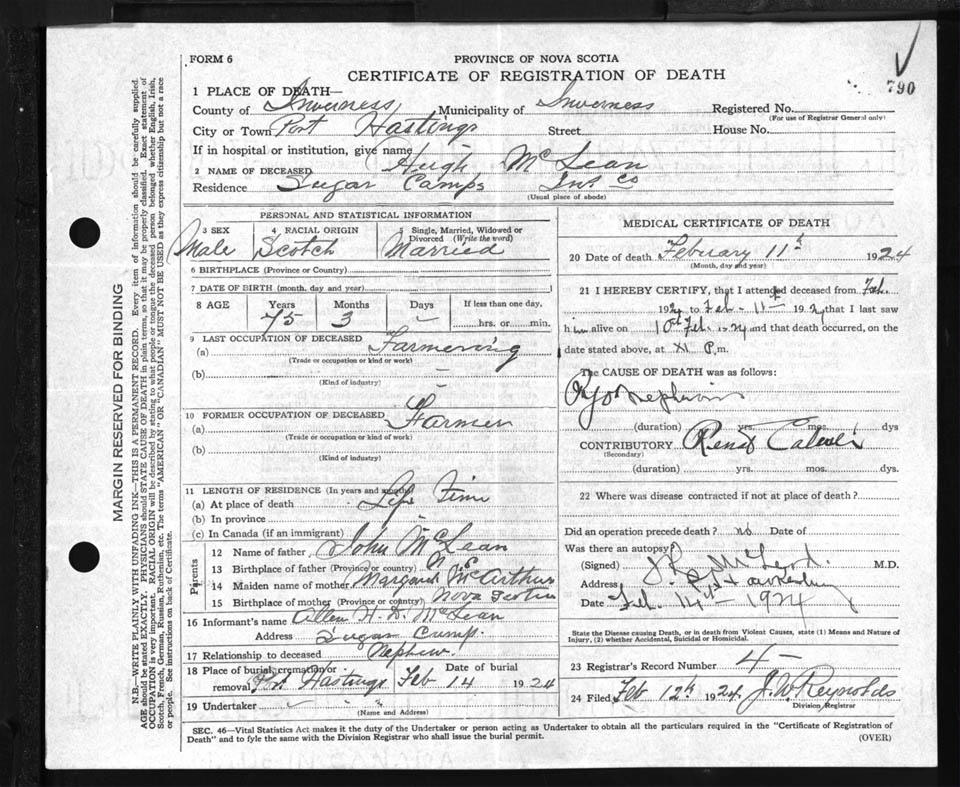 FORM 6
PROVINCE OF NOVA SCOTIA
790
CERTIFICATE OF REGISTRATION OF DEATH
MARGIN RESERVED FOR BINDING
N.B.—WRITE PLAINLY WITH UNFADING INK—THIS IS A PERMANENT RECORD. Every item of information should be carefully supplied.
AGE should be stated EXACTLY. PHYSICIANS should STATE CAUSE OF DEATH in plain terms, so that it may be properly classified. Exact statement of
OCCUPATION is very important. RACIAL ORIGIN will be described by stating to what people or tongue the deceased person belonged whether English, Irish,
Scotch, French, German, Russian, Ruthenian, etc. The terms "AMERICAN" OR "CANADIAN" MUST NOT BE USED as they express citizenship but not a race
or people. See instructions on back of Certificate.
1 PLACE OF DEATH—
County of Inverness Municipality of Inverness Registered No.
(For use of Registrar General only)
City or Town Port Hastings Street House No.
If in hospital or institution, give name
2 NAME OF DECEASED Hugh McLean
Residence Sugar Camps Inv. Co
(Usual place of abode)
PERSONAL AND STATISTICAL INFORMATION
3 SEX Male
4 RACIAL ORIGIN Scotch
5 Single, Married, Widowed or Divorced (Write the word) Married
6 BIRTHPLACE (Province or Country)
7 DATE OF BIRTH (month, day and year)
8 AGE Years 75 Months 3 Days — If less than one day, hrs. or min.
9 LAST OCCUPATION OF DECEASED
(a) Farmering
(Trade or occupation or kind or work)
(b) —
(Kind of industry)
10 FORMER OCCUPATION OF DECEASED
(a) Farmer
(Trade or occupation or kind of work)
(b)
(Kind of industry)
11 LENGTH OF RESIDENCE (In years and months)
(a) At place of death Life Time
(b) In province
(c) In Canada (if an immigrant)
Parents
12 Name of father John McLean
13 Birthplace of father (Province or country) N S
14 Maiden name of mother Margaret McArthur
15 Birthplace of mother (Province or country) Nova Scotia
16 Informant's name Allen H. D. McLean
Address Sugar Camp.
17 Relationship to deceased Nephew.
18 Place of burial, cremation or removal Port Hastings Date of burial Feb 14 1924
19 Undertaker
(Name and Address)
MEDICAL CERTIFICATE OF DEATH
20 Date of death February 11th 1924
(Month, day and year)
21 I HEREBY CERTIFY, that I attended deceased from Feb.
192 to Feb. 11th 192 that I last saw
him alive on 10th Feb. 1924 and that death occurred, on the
date stated above, at XI P.m.
The CAUSE OF DEATH was as follows:
(duration) yrs. mos. days
CONTRIBUTORY Renal
(Secondary)
(duration) yrs. mos. days.
22 Where was disease contracted if not at place of death?
Did an operation precede death? no Date of
Was there an autopsy?
(Signed) M.D.
Address
Date Feb. 14th 1924
State the Disease causing Death, or in death from Violent Causes, state (1) Means and Nature of
Injury, (2) whether Accidental, Suicidal or Homicidal.
23 Registrar's Record Number 4 —
24 Filed Feb 12th 1924. J. W. Reynolds
Division Registrar
SEC. 46—Vital Statistics Act makes it the duty of the Undertaker or person acting as Undertaker to obtain all the particulars required in the "Certificate of Registration of
Death" and to fyle the same with the Division Registrar who shall issue the burial permit.
(OVER)